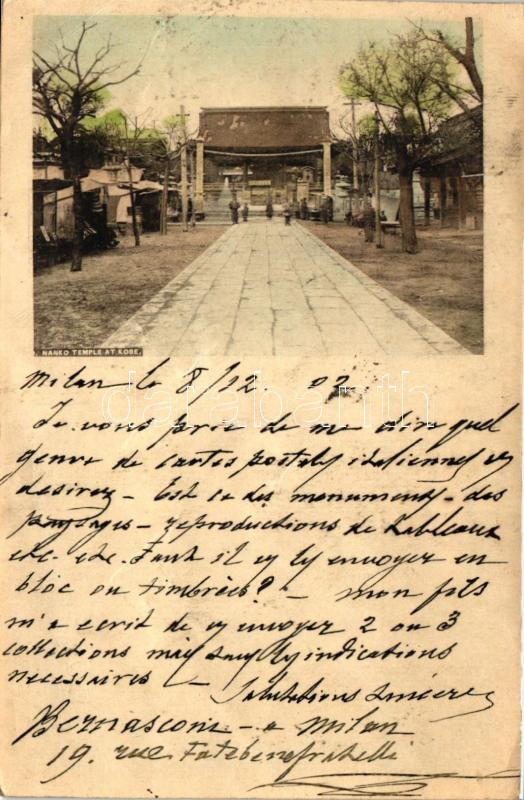 NANKO TEMPLE AT KOBE.
Milan le 8/12. 02
Je vous prie de me dire quel
genre de cartes postales italiennes vs
desirez - Est ce des monuments - des
paysages - reproductions de tableaux
etc. etc. Faut il vs les envoyer en
bloc ou timbrées? - mon fils
m'a ecrit de vs envoyer 2 ou 3
collections mais sans les indications
necessaires - Salutations sincères
Bernasconi - a Milan
19. rue Fatebenefratelli
databanth